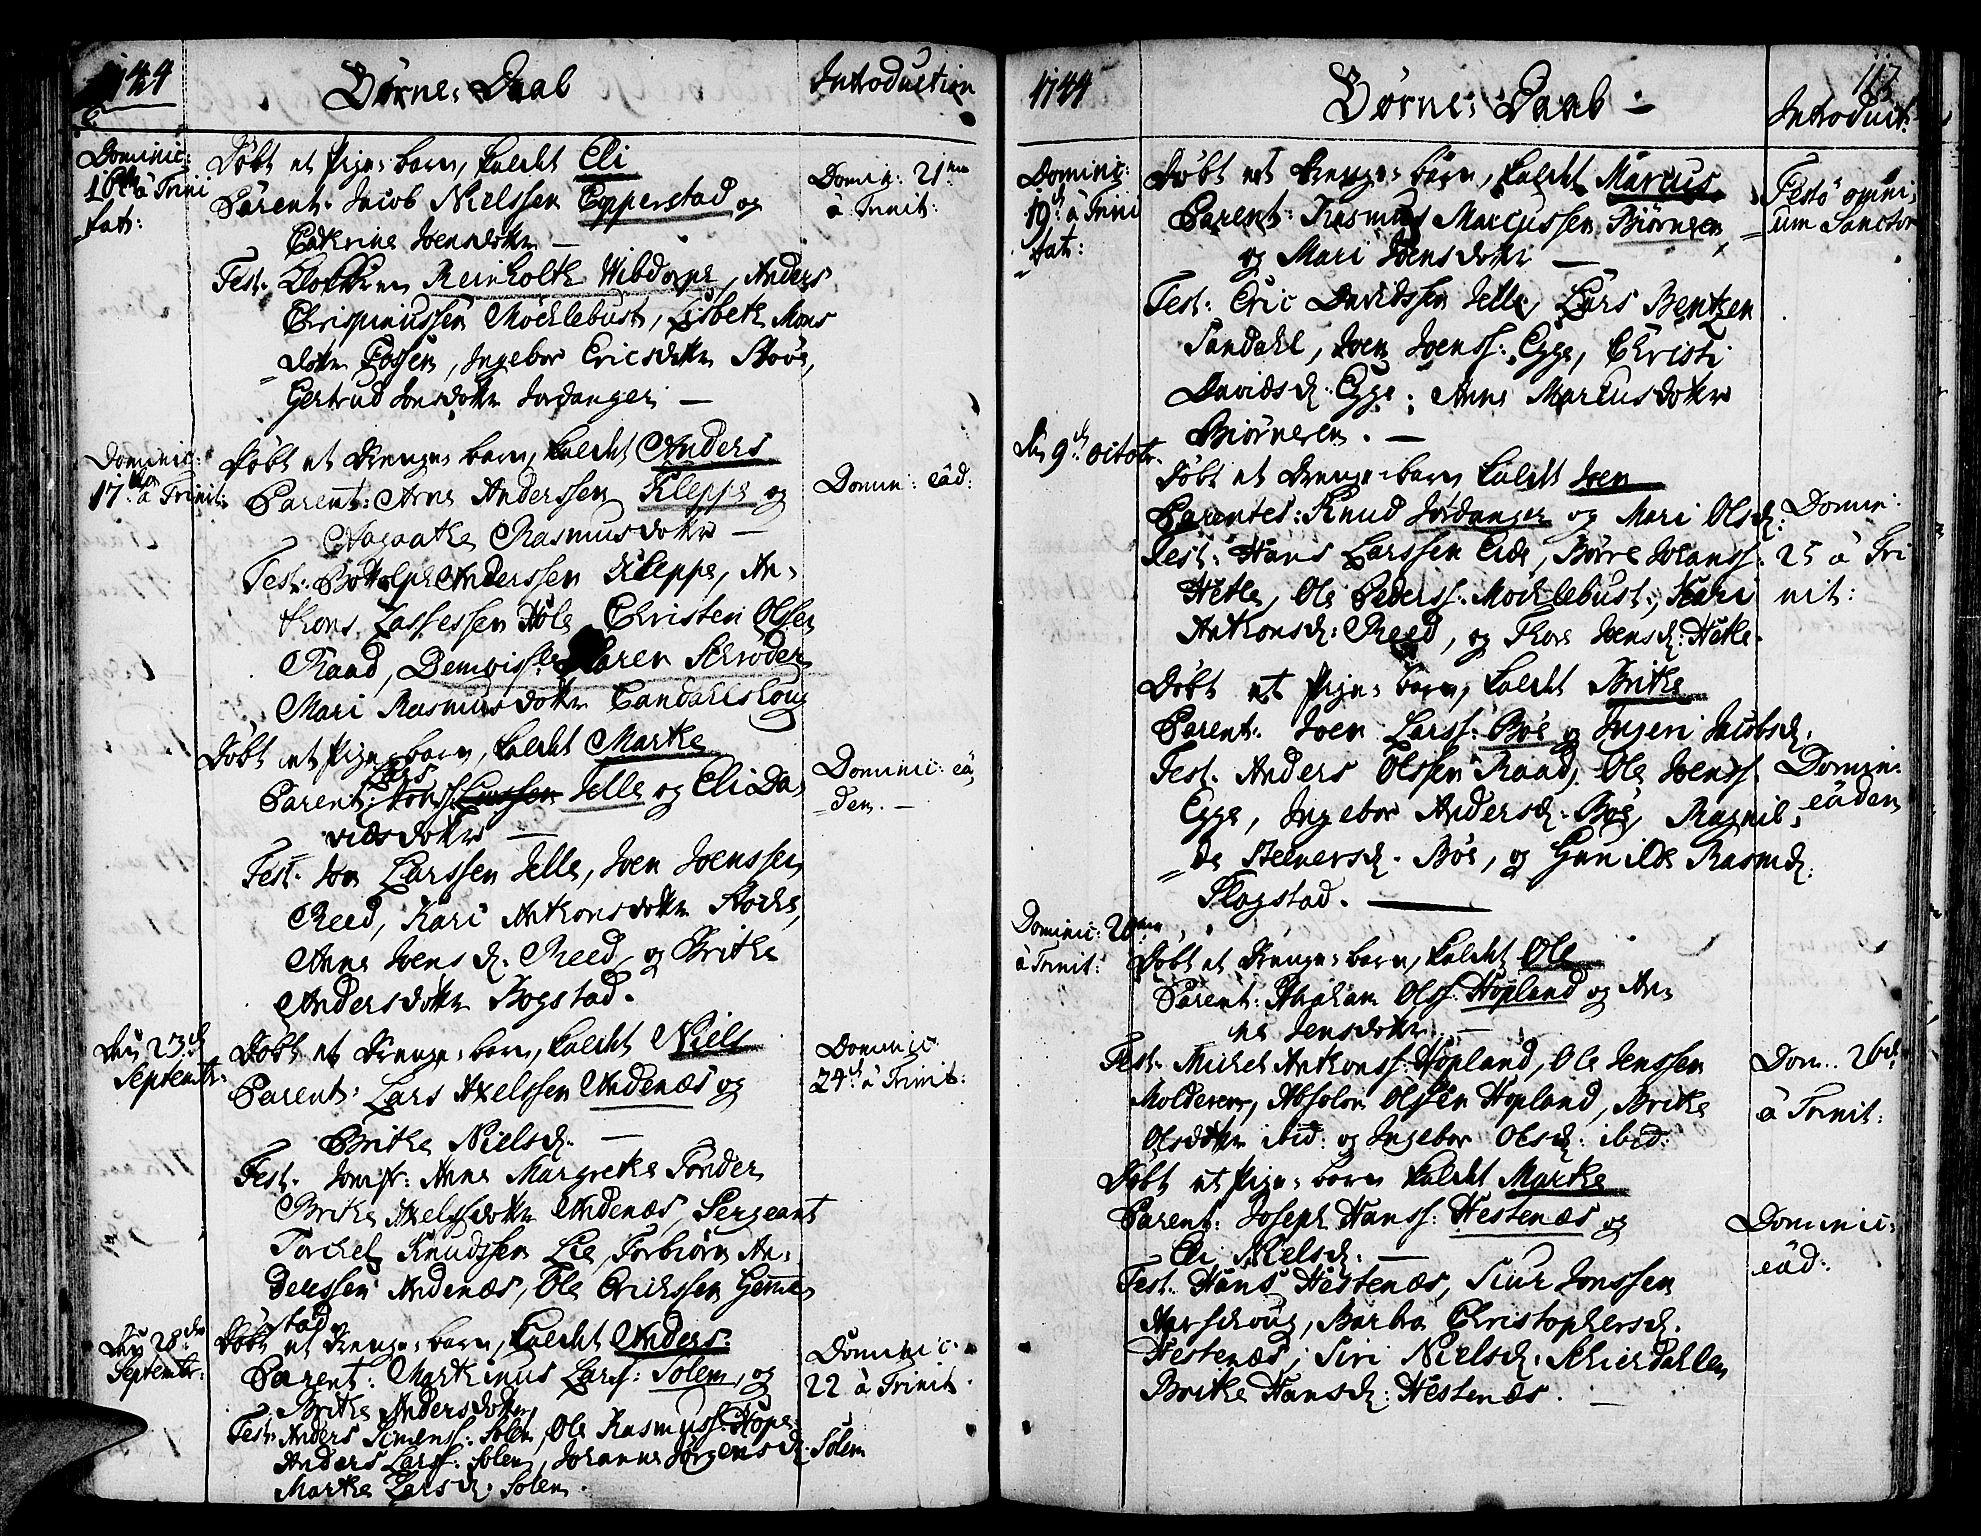 1744
Børne-Daab
Introduction
Dominic:
16de à Trini
tat:
Døbt et Pige-barn, kaldt Eli
Parent. Jacob Nielssen Epperstad og
Cathrine Joensdotter —
Test. Klokkeren Reinholth Wibdorph, Anders
Chrispinussen Mochlebust, Lisbeth Mons
dotter Fossen, Ingebor Ericsdotter Støve,
Gertrud Jonsdotter Jordanger —
Domin: 21me
à Trinit:
Dominic:
17de à Trinit:
Døbt et Drenge-barn, kaldt Anders
Parent: Arne Anderssen Kleppe og
Aagaathe Rasmusdotter —
Test. Bottolph Anderssen Kleppe, An-
thons Lassessen Hole, Christen Olsen
Raad, Demoisse Karen Schrøder,
Mari Rasmusdotter Sandalskoug
Domin: eâd:
Døbt et Pige-barn, kaldt Marthe
Lars
Parent: Jonss. Larssen Jelle og Eli Da-
vidsdotter —
Test. Jon Larssen Jelle, Joen Joenssen
Reed, Kari Anthonsdotter Støche,
Anne Joensd. Reed, og Brithe
Andersdotter Bogstad.
Dominic: eâ-
dem. —
Den 23de
Septembr:
Døbt et Drenge-barn, kaldt Niels
Parent: Lars Axelssen Andenæs og
Brithe Nielsd. —
Test. Jomfr: Anne Margrethe Tønder
Brithe Axelsdotter Andenæs, Sergeant
Torchel Knudssen Lie, Torbiørn An-
derssen Andenæs, Ole Erichssen Gimme-
stad
Dominic
24de à Trinit:
Den 28de
Septembr:
Døbt et Drenge-barn, kaldt Anders
Parent: Marthinus Larss: Solem, og
Brithe Andersdotter
Test. Anders Simenss: Solem, Ole Rasmuss. Hope,
Anders Larss: Solem, Johanne Jørgensd. Solem
Marthe Larsd. Solem.
Dominic:
22 à Trinit.
1744
Børne-Daab —
117
Introduct:
Dominic:
19de à Trini
tat:
Døbt et Drenge-barn, kaldt Marcus
Parent: Rasmus Marcussen Biørneren
og Mari Joensdotter —
Test: Eric Davidssen Jelle, Lars Bentzen
Sandahl, Joen Joenss: Egge, Christi
Davidsd. Egge; Anne Marcusdotter
Biørneren. —
Festo omni-
um Sanctor
Den 9de Octobr.
Døbt et Drenge-barn kaldt Joen
Parentes: Knud Jordanger og Mari Olsd:
Test: Hans Larssen Eide, Børre Johanss:
Hetle, Ole Pederss. Mochlebust, Kari
Anthonsd: Reed, og Thore Joensd: Hetle.
Domin:
25 à Tri
nit:
Døbt et Pige-barn, kaldt Brithe
Parent. Joen Larss: Bøe og Ingeri Jacobsd.
Test. Anders Olssen Raad, Ole Joenss.
Egge, Ingebor Andersd. Bøe, Magnil-
de Steenersd. Bøe, og Gunilde Rasmd:
Flogstad. —
Domin:
eâdem
Dominic: 20me
à Trinit:
Døbt et Drenge-barn, kaldt Ole
Parent: Abraham Olss: Hopland og An-
ne Jensdotter. —
Test. Michel Anthonss: Hopland, Ole Jenssen
Molderen, Absolon Olssen Hopland, Brithe
Olsdotter ibid: og Ingebor Olsd: ibid:
Dom.. 26de
à Trinit:
Døbt et Pige-barn kaldt Marthe
Parent: Joseph Hanss: Hestenæs og
Eli Nielsd: —
Test. Hans Hestenæs, Siur Jonssen
Aarschoug, Barbra Christophersd.
Hestenæs, Siri Nielsd. Schierdahlen
Brithe Hansd: Hestenæs.
Dominic:
eâd: